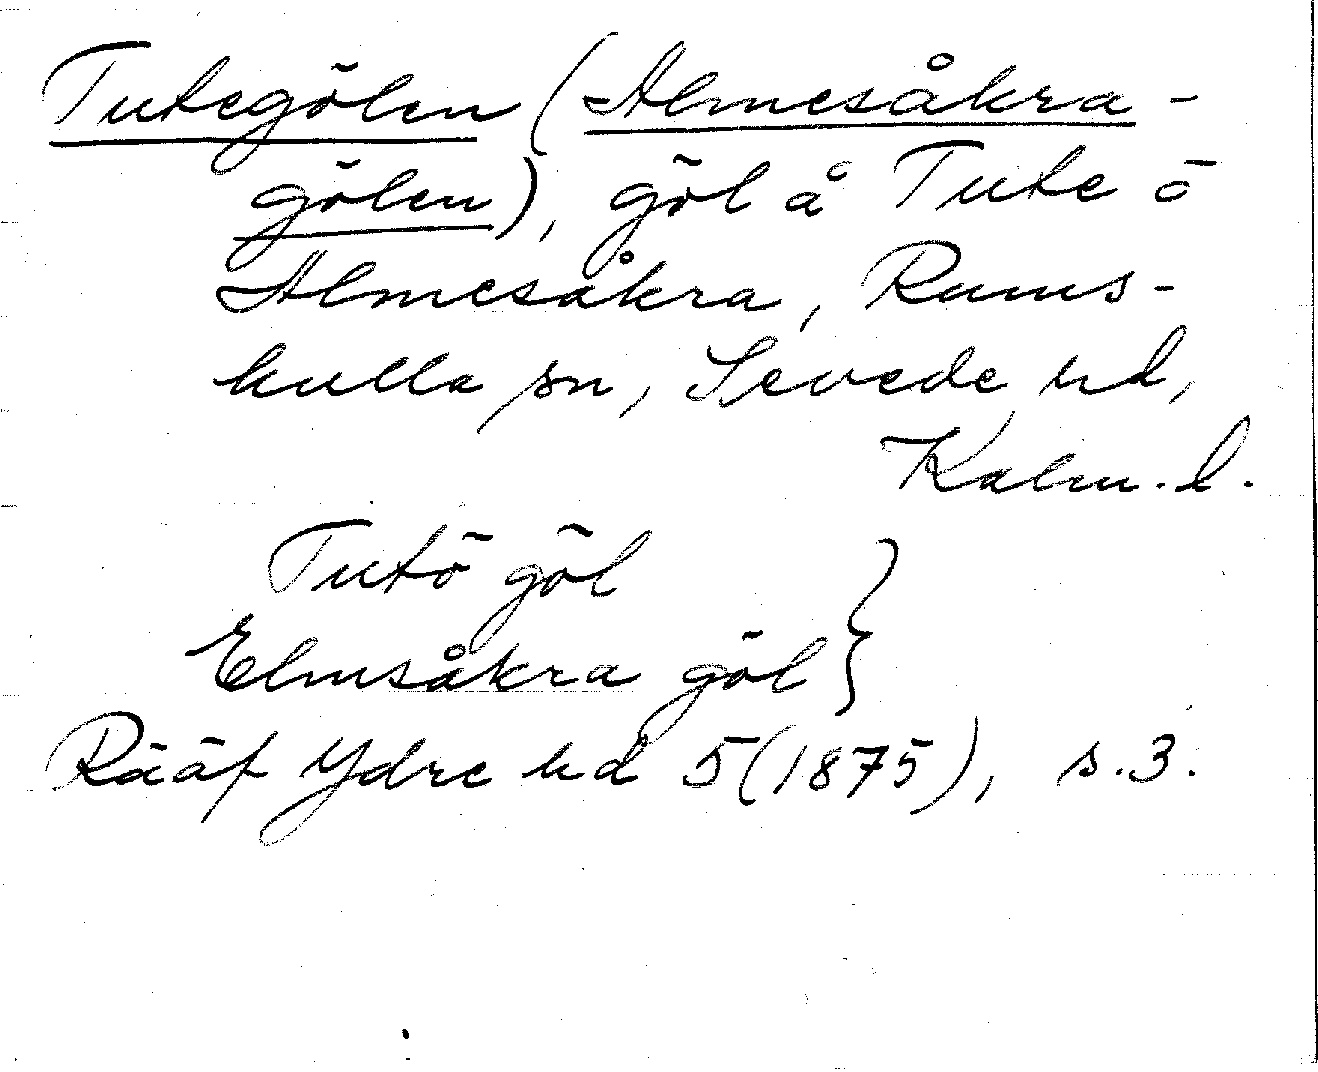 Tutegölen (Almesåkra-
gölen), göl å Tute o
Almesåkra, Rums-
kulla sn, Sevede hd,
Kalm. l.
Tutö göl
Elmsåkra göl }
Rääf Ydre hd 5 (1875), s. 3.